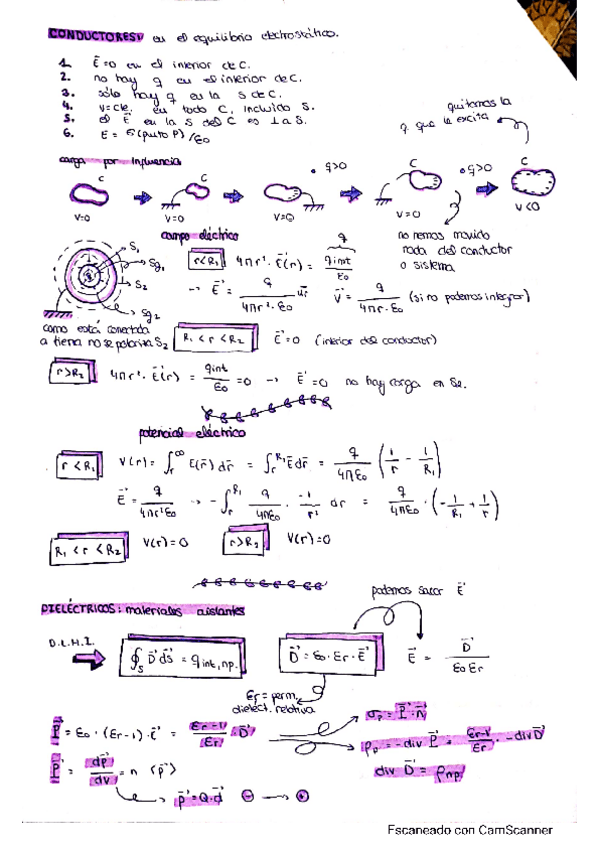 CONDUCTORES: en el equilibrio electrostático.
1. E⃗=0 en el interior de C.
2. no hay q en el interior de C.
3. sólo hay q en la S de C.
4. V=cte. en todo C, incluido S.
5. el E⃗ en la S del C es ⊥ a S.
6. E = σ(punto P)/ε0
quitamos la
q que la excita
carga por influencia
C C q>0 C q>0 C
V=0 V=0 V=0 V=0 V<0
no hemos movido
nada del conductor
o sistema
campo eléctrico
S1
Sg1
S2
Sg2
r<R1 4πr²·E⃗(r) = q int/ε0 q
→ E⃗ = q/4πr²·ε0 u⃗r V⃗ = q/4πr·ε0 (si no podemos integrar)
como está conectada
a tierra no se polariza S2
R1 < r < R2 E⃗=0 (interior del conductor)
r>R2 4πr²·E⃗(r) = q int/ε0 =0 → E⃗=0 no hay carga en Se.
potencial eléctrico
r < R1 V(r) = ∫r^∞ E(r⃗) dr⃗ = ∫r^R1 E⃗dr⃗ = q/4πε0 (1/r - 1/R1)
E⃗ = q/4πr²ε0 → -∫r^R1 q/4πε0 · -1/r² dr = q/4πε0 · (-1/R1 + 1/r)
R1 < r < R2 V(r)=0 r>R2 V(r)=0
podemos sacar E⃗
DIELÉCTRICOS: materiales aislantes
D.L.H.I. ∮S D⃗ dS⃗ = q int, np. D⃗ = ε0·εr·E⃗ E⃗ = D⃗/ε0εr
εr = perm.
dieléct. relativa
P⃗ = ε0·(εr-1)·E⃗ = εr-1/εr · D⃗
σp = P⃗·N⃗
ρp = -div P⃗ = εr-1/εr · -div D⃗
div D⃗ = ρnp
P⃗ = dp⃗/dv = n ⟨p⃗⟩
p⃗ = Q·d⃗ ⊖ → ⊕
Escaneado con CamScanner